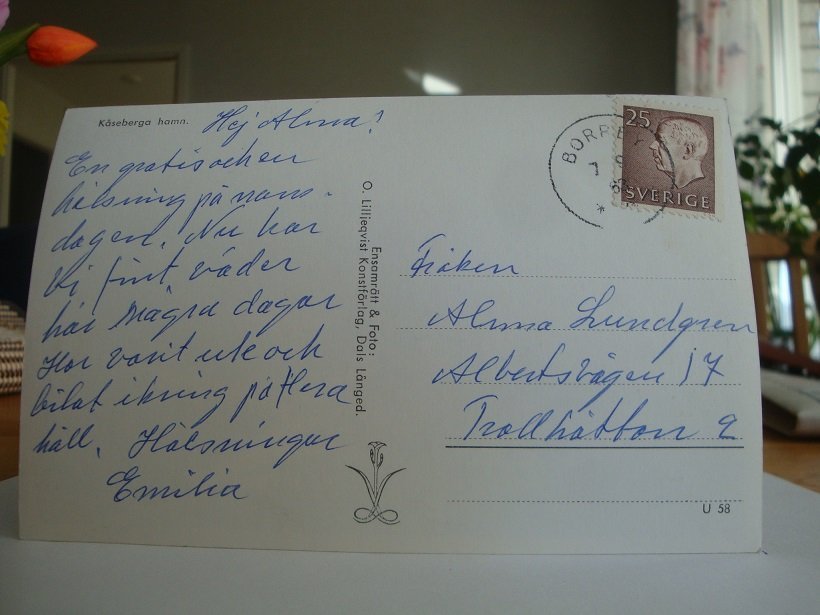 Kåseberga hamn.
Hej Alma!
En gratis och en
hälsning på nams-
dagen. Nu har
vi fint väder
här några dagar
Har varit ute och
bilat ikring på flera
håll. Hälsningar
Emilia
Ensamrätt & Foto:
O. Lilljeqvist Konstförlag, Dals Långed.
25
SVERIGE
BORRBY
Fröken
Alma Lundgren
Albertsvägen 17
Trollhättan 2
U 58